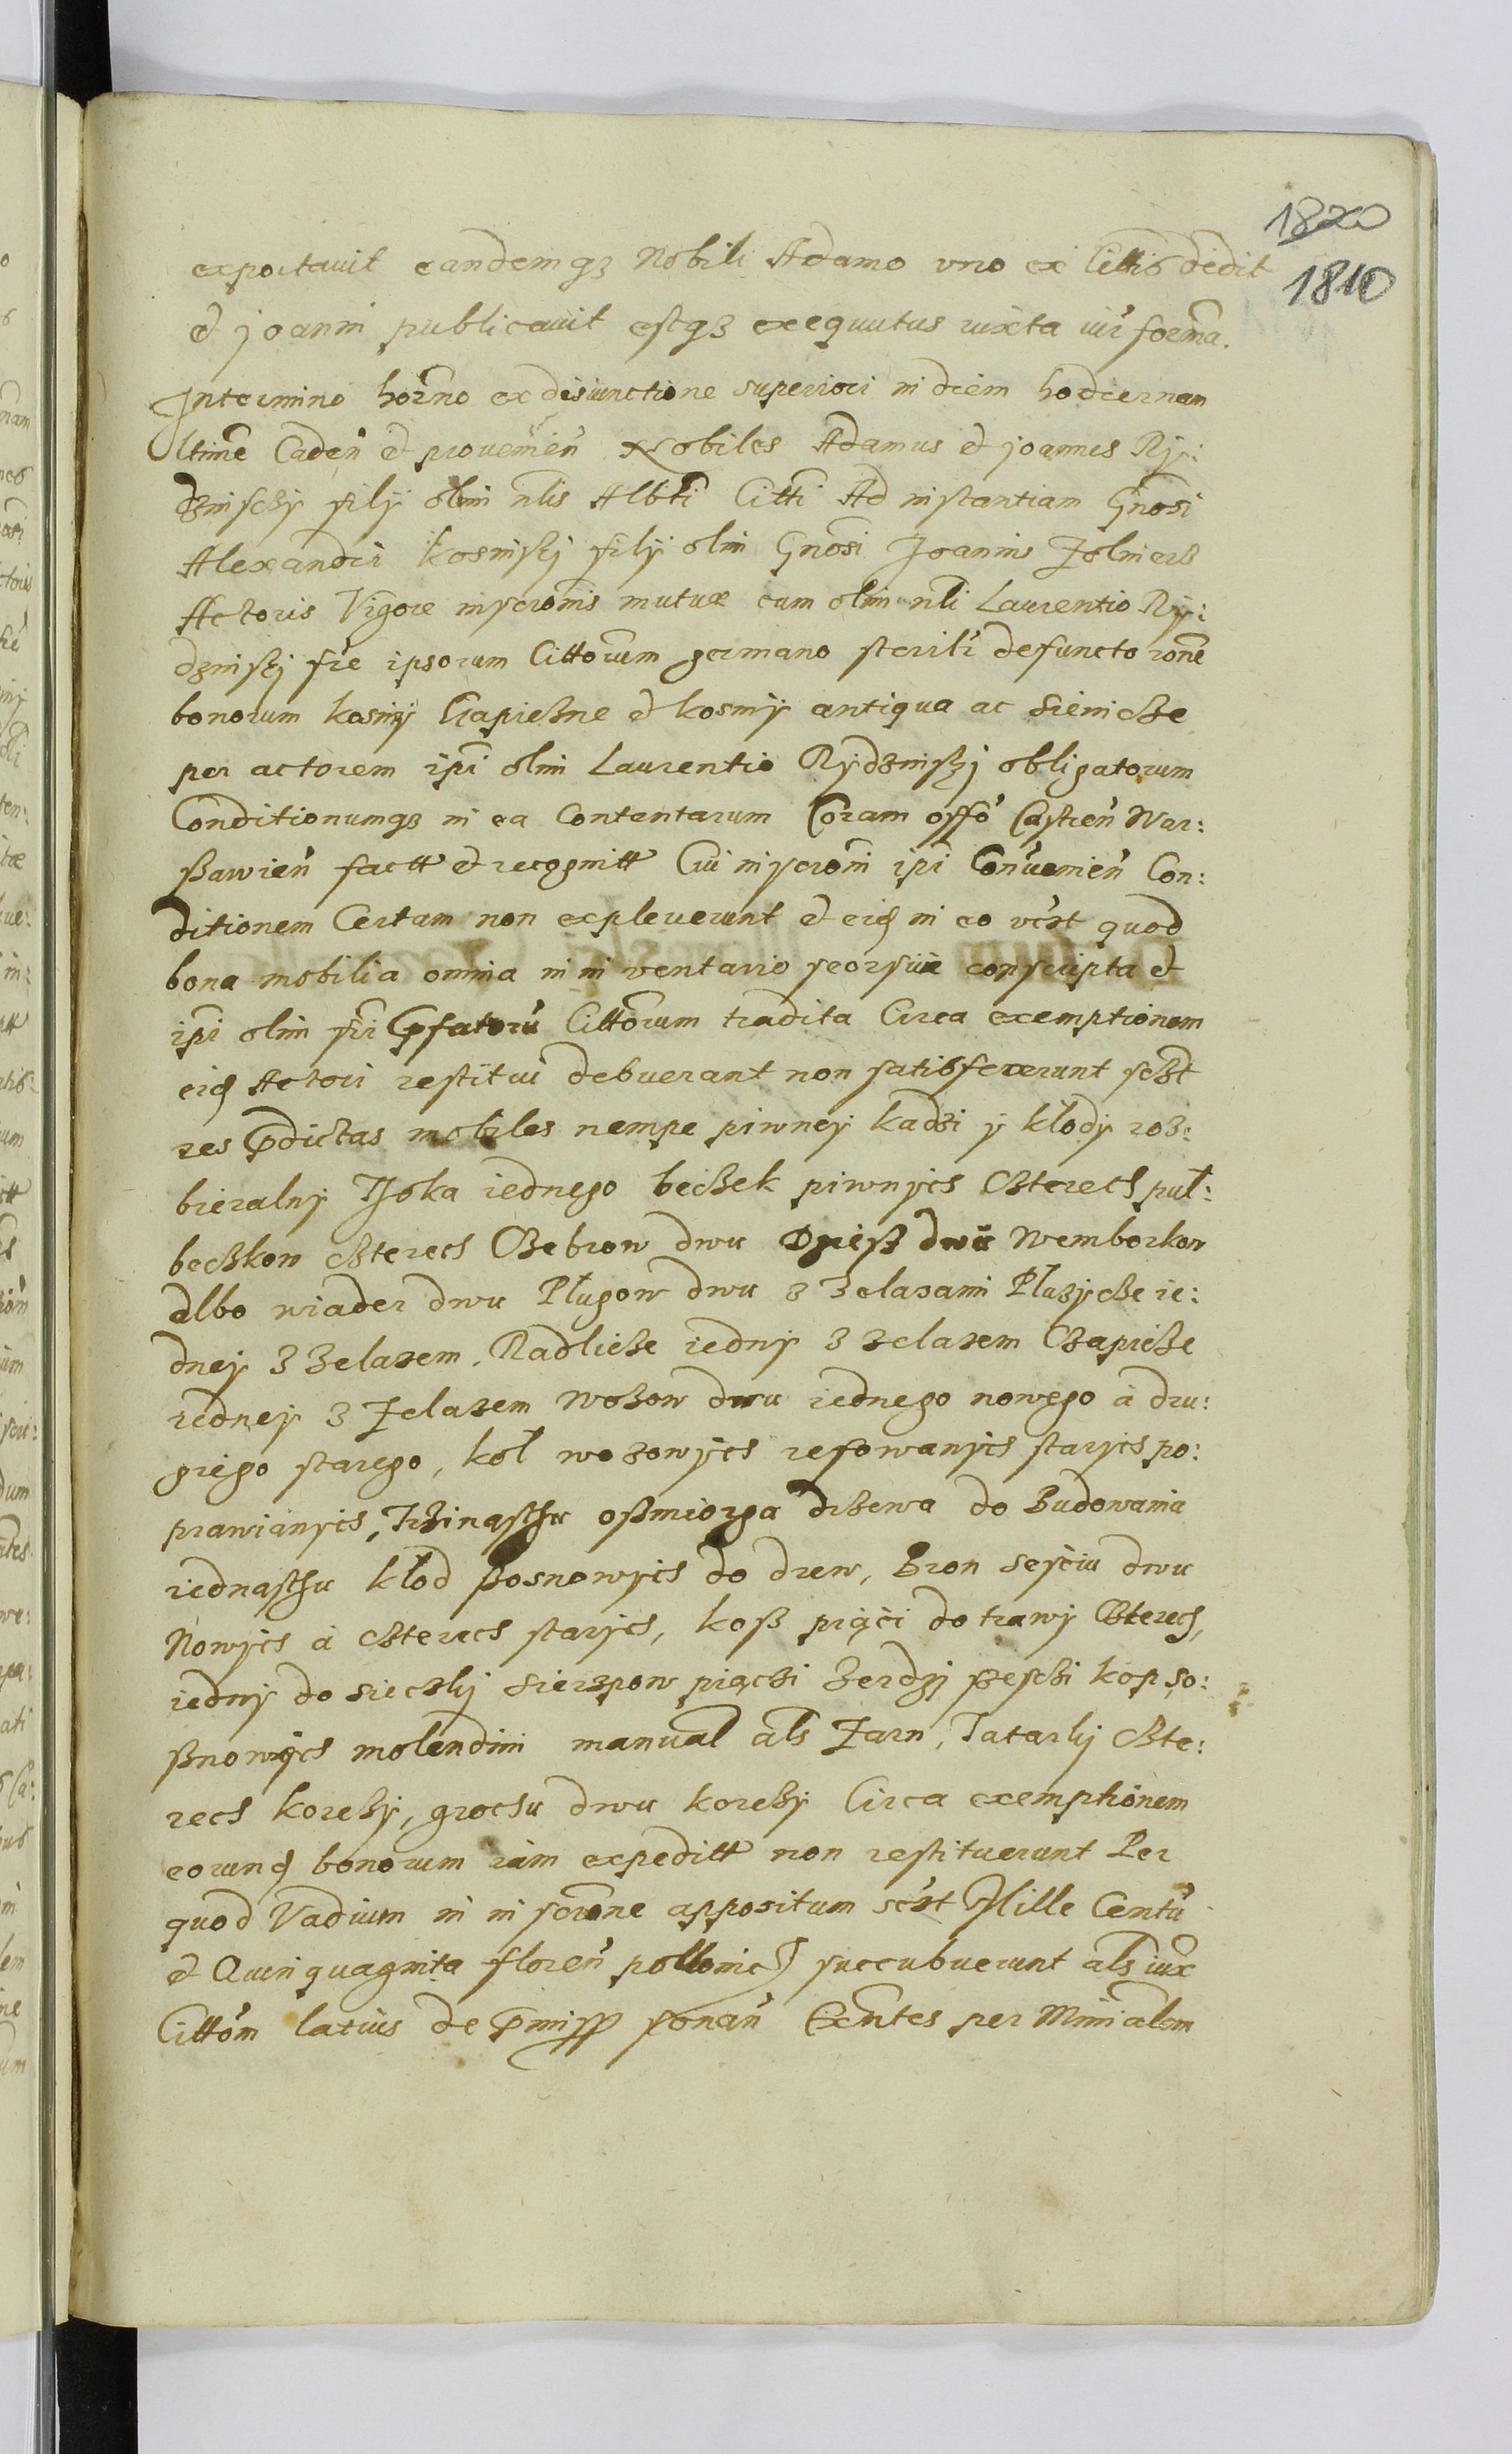 1820
1810
exportavit eandemqȝ Nobili Adamo uno ex Cittis dedit
et joanni publicavit estqȝ exequutus iuxta iur forma.
Intermino horno ex disiunctione superiori in diem hodiernam
Ultime Caden et provenien Nobiles Adamus et joannes Ry:
dzinsczy filÿ olim nlis Albti Citti Ad instantiam Gnosi
Alexandri Kosinsky filÿ olim Gnosi Joannis Zolnierz
Actoris Vigore inscronis mutuæ cum olim nli Laurentio Ry:
dzinsky fre ipsorum Cittorum germano sterili defuncto rone
bonorum kosinÿ Czapiczne et kosinÿ antiqua ac Siennicze
per actorem ipsi olim Laurentio Rydzinsky obligatorum
Conditionumqȝ in ea Contentarum Coram offo Castren War:
ßawien factt et recognitt Cui inscroni ipsi Convenien Con:
ditionem Certam non expleverunt et eiq in eo vczt quod
bona mobilia omnia in inventario seorsive conscripta et
ipsi olim fri Pfatoru Cittorum tradita Circa exemptionem
eiq Actori restitui debuerant non satisfecerunt sczt
res Pdictas mobiles nempe piwney kadzi y kłody roz:
bieralny Tłoka iednego beczek piwnych Czterech puł:
beczkow czterech Czebrow dwu dwu Wemborkow
albo wiader dwu Pługow dwu z zelazami Płuzycze ie:
dney z zelazem, Radlicze iedny z zelazem Czapicze
iedney z Zelazem Wozow dwu iednego nowego a dru:
griego starego, koł wozowych refowanych starych po:
prawianych, Trzinasthu oßmiorga drzewa do Budowania
iednasthu kłod ßosnowych do drew, Bron sesciu dwu
Nowych á czterech starych, koß piąci do trawy Czterech,
iedny do sieczky Sierzpow piączi Zerdzy ßeschi kop so:
ßnowych molendini manual als Zarn, Tatarky Czte:
rech korczy, grochu dwu korczy Circa exemptionem
eorunq bonorum iam expeditt non restituerunt Per
quod Vadium in inscrone appositum sczt Mille Centu
et Quinquaginta floren pollonic succubuerunt als iux
Cittom latius de Pmiss sonan Exntes per Minialem